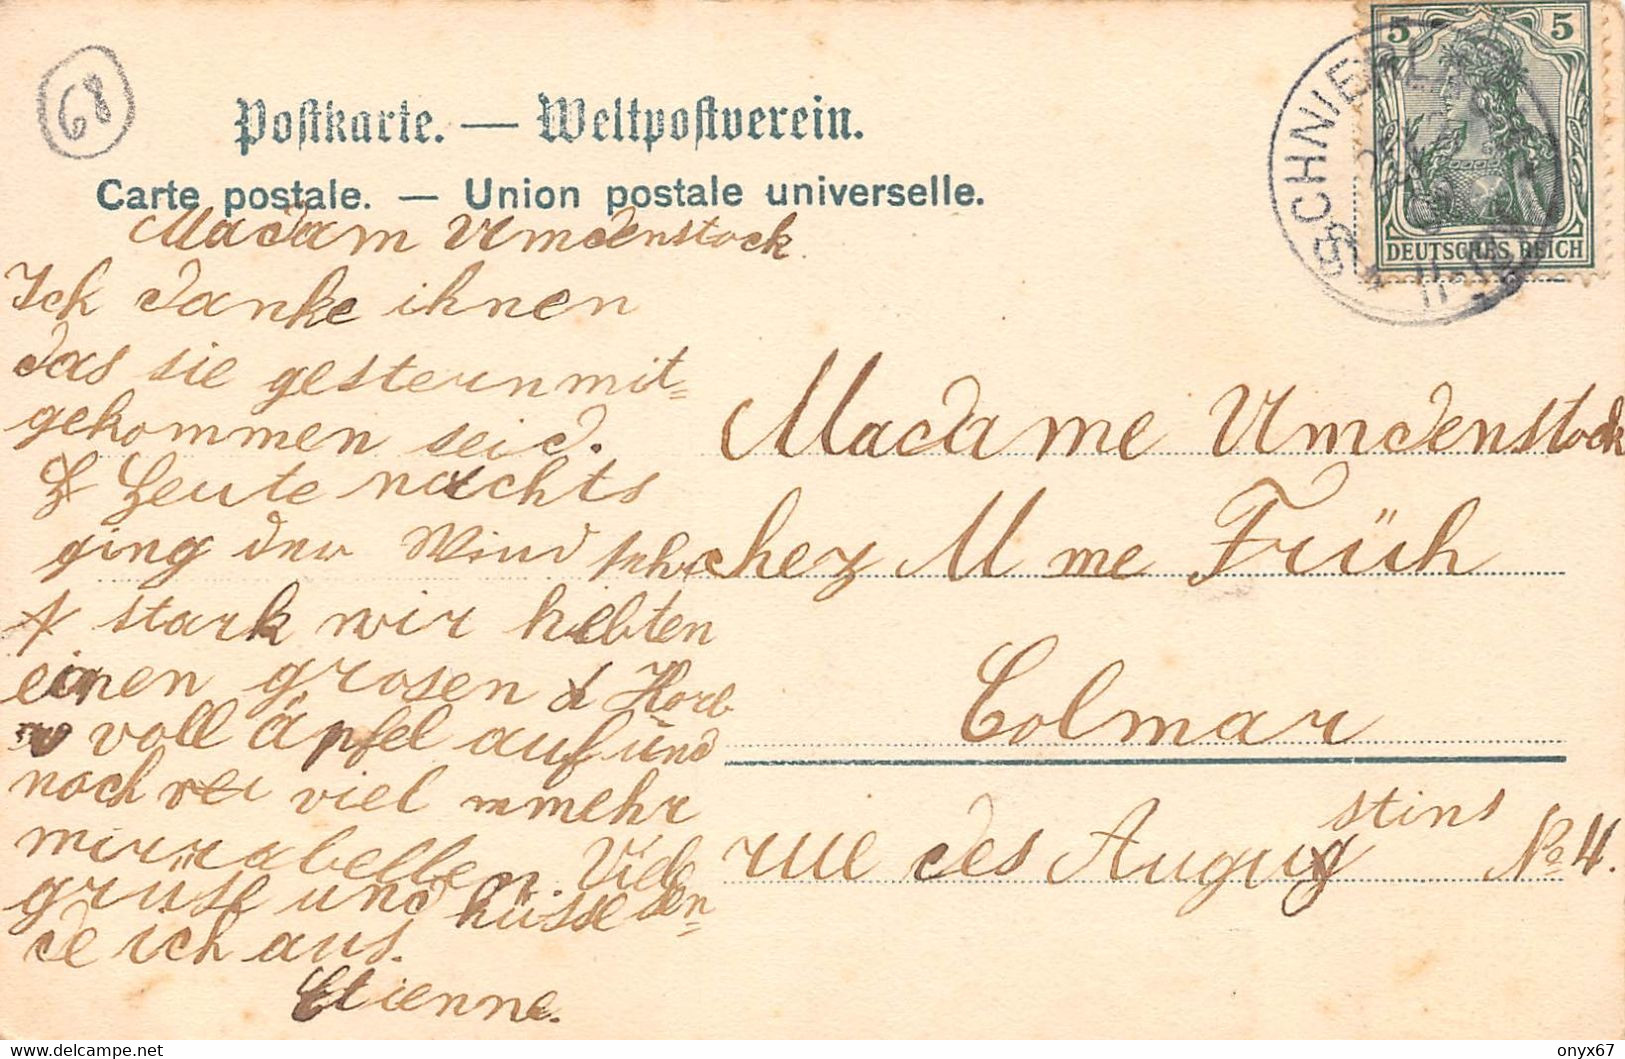 68
Postkarte. — Weltpostverein.
Carte postale. — Union postale universelle.
5 5
DEUTSCHES REICH
SCHNIERLACH
Madam Umdenstock
Ich danke ihnen
das sie gestern mit-
gekommen seid.
Heute nachts
ging der Wind sehr
stark wir hebten
einen grosen Korb
voll Äpfel auf und
noch viel mmehr
mirrabellen. Viele
grüse und küsse sen-
de ich aus.
Etienne.
Madame Umdenstock
chez Mme Früh
Colmar
rue des Augustins No 4.
delcampe.net
onyx67